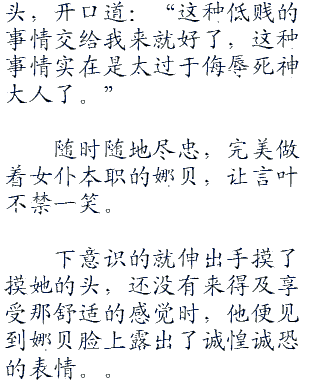 头，开口道：“这种低贱的
事情交给我来就好了，这种
事情实在是太过于侮辱死神
大人了。”
随时随地尽忠，完美做
着女仆本职的娜贝，让言叶
不禁一笑。
下意识的就伸出手摸了
摸她的头，还没有来得及享
受那舒适的感觉时，他便见
到娜贝脸上露出了诚惶诚恐
的表情。。